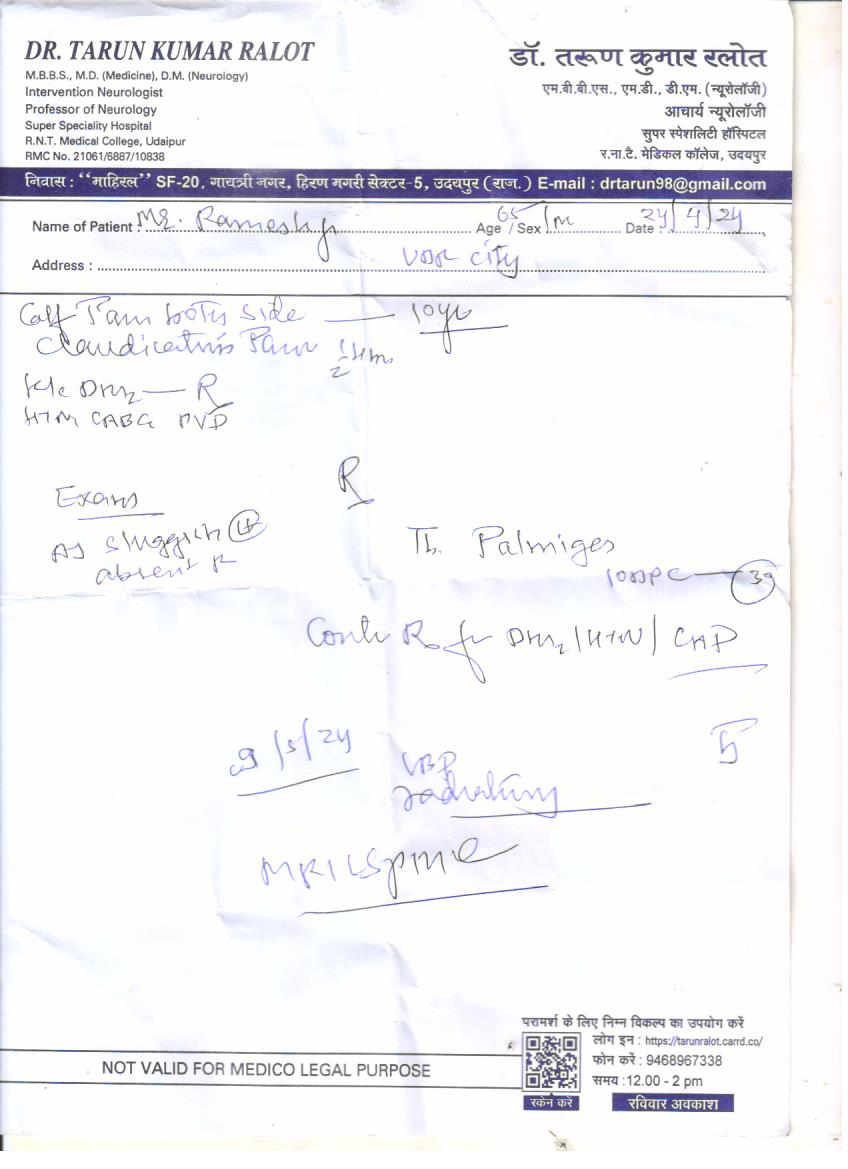 DR. TARUN KUMAR RALOT
M.B.B.S., M.D. (Medicine), D.M. (Neurology)
Intervention Neurologist
Professor of Neurology
Super Speciality Hospital
R.N.T. Medical College, Udaipur
RMC No. 21061/6887/10838
डॉ. तरूण कुमार रलोत
एम.बी.बी.एस., एम.डी., डी.एम. (न्यूरोलॉजी)
आचार्य न्यूरोलॉजी
सुपर स्पेशलिटी हॉस्पिटल
र.ना.टै. मेडिकल कॉलेज, उदयपुर
निवास : "माहिरल" SF-20, गायत्री नगर, हिरण मगरी सेक्टर-5, उदयपुर (राज.) E-mail : drtarun98@gmail.com
Name of Patient : Mr. Ramesh ji Age / Sex 65/m Date : 24/4/24
Address : UDR city
Calf Pain both side — 10yr
Claudication Pain
K/c DM2 — R
HTN CABG PVD
R
Exam
AJ sluggish
absent R
Tb. Palmiges
Cont R for DM2/HTN/CAD
9/5/24
LBP
radiating
MRI LS pine
परामर्श के लिए निम्न विकल्प का उपयोग करें
लोग इन : https://tarunralot.carrd.co/
फोन करें : 9468967338
समय :12.00 - 2 pm
स्केन करें रविवार अवकाश
NOT VALID FOR MEDICO LEGAL PURPOSE